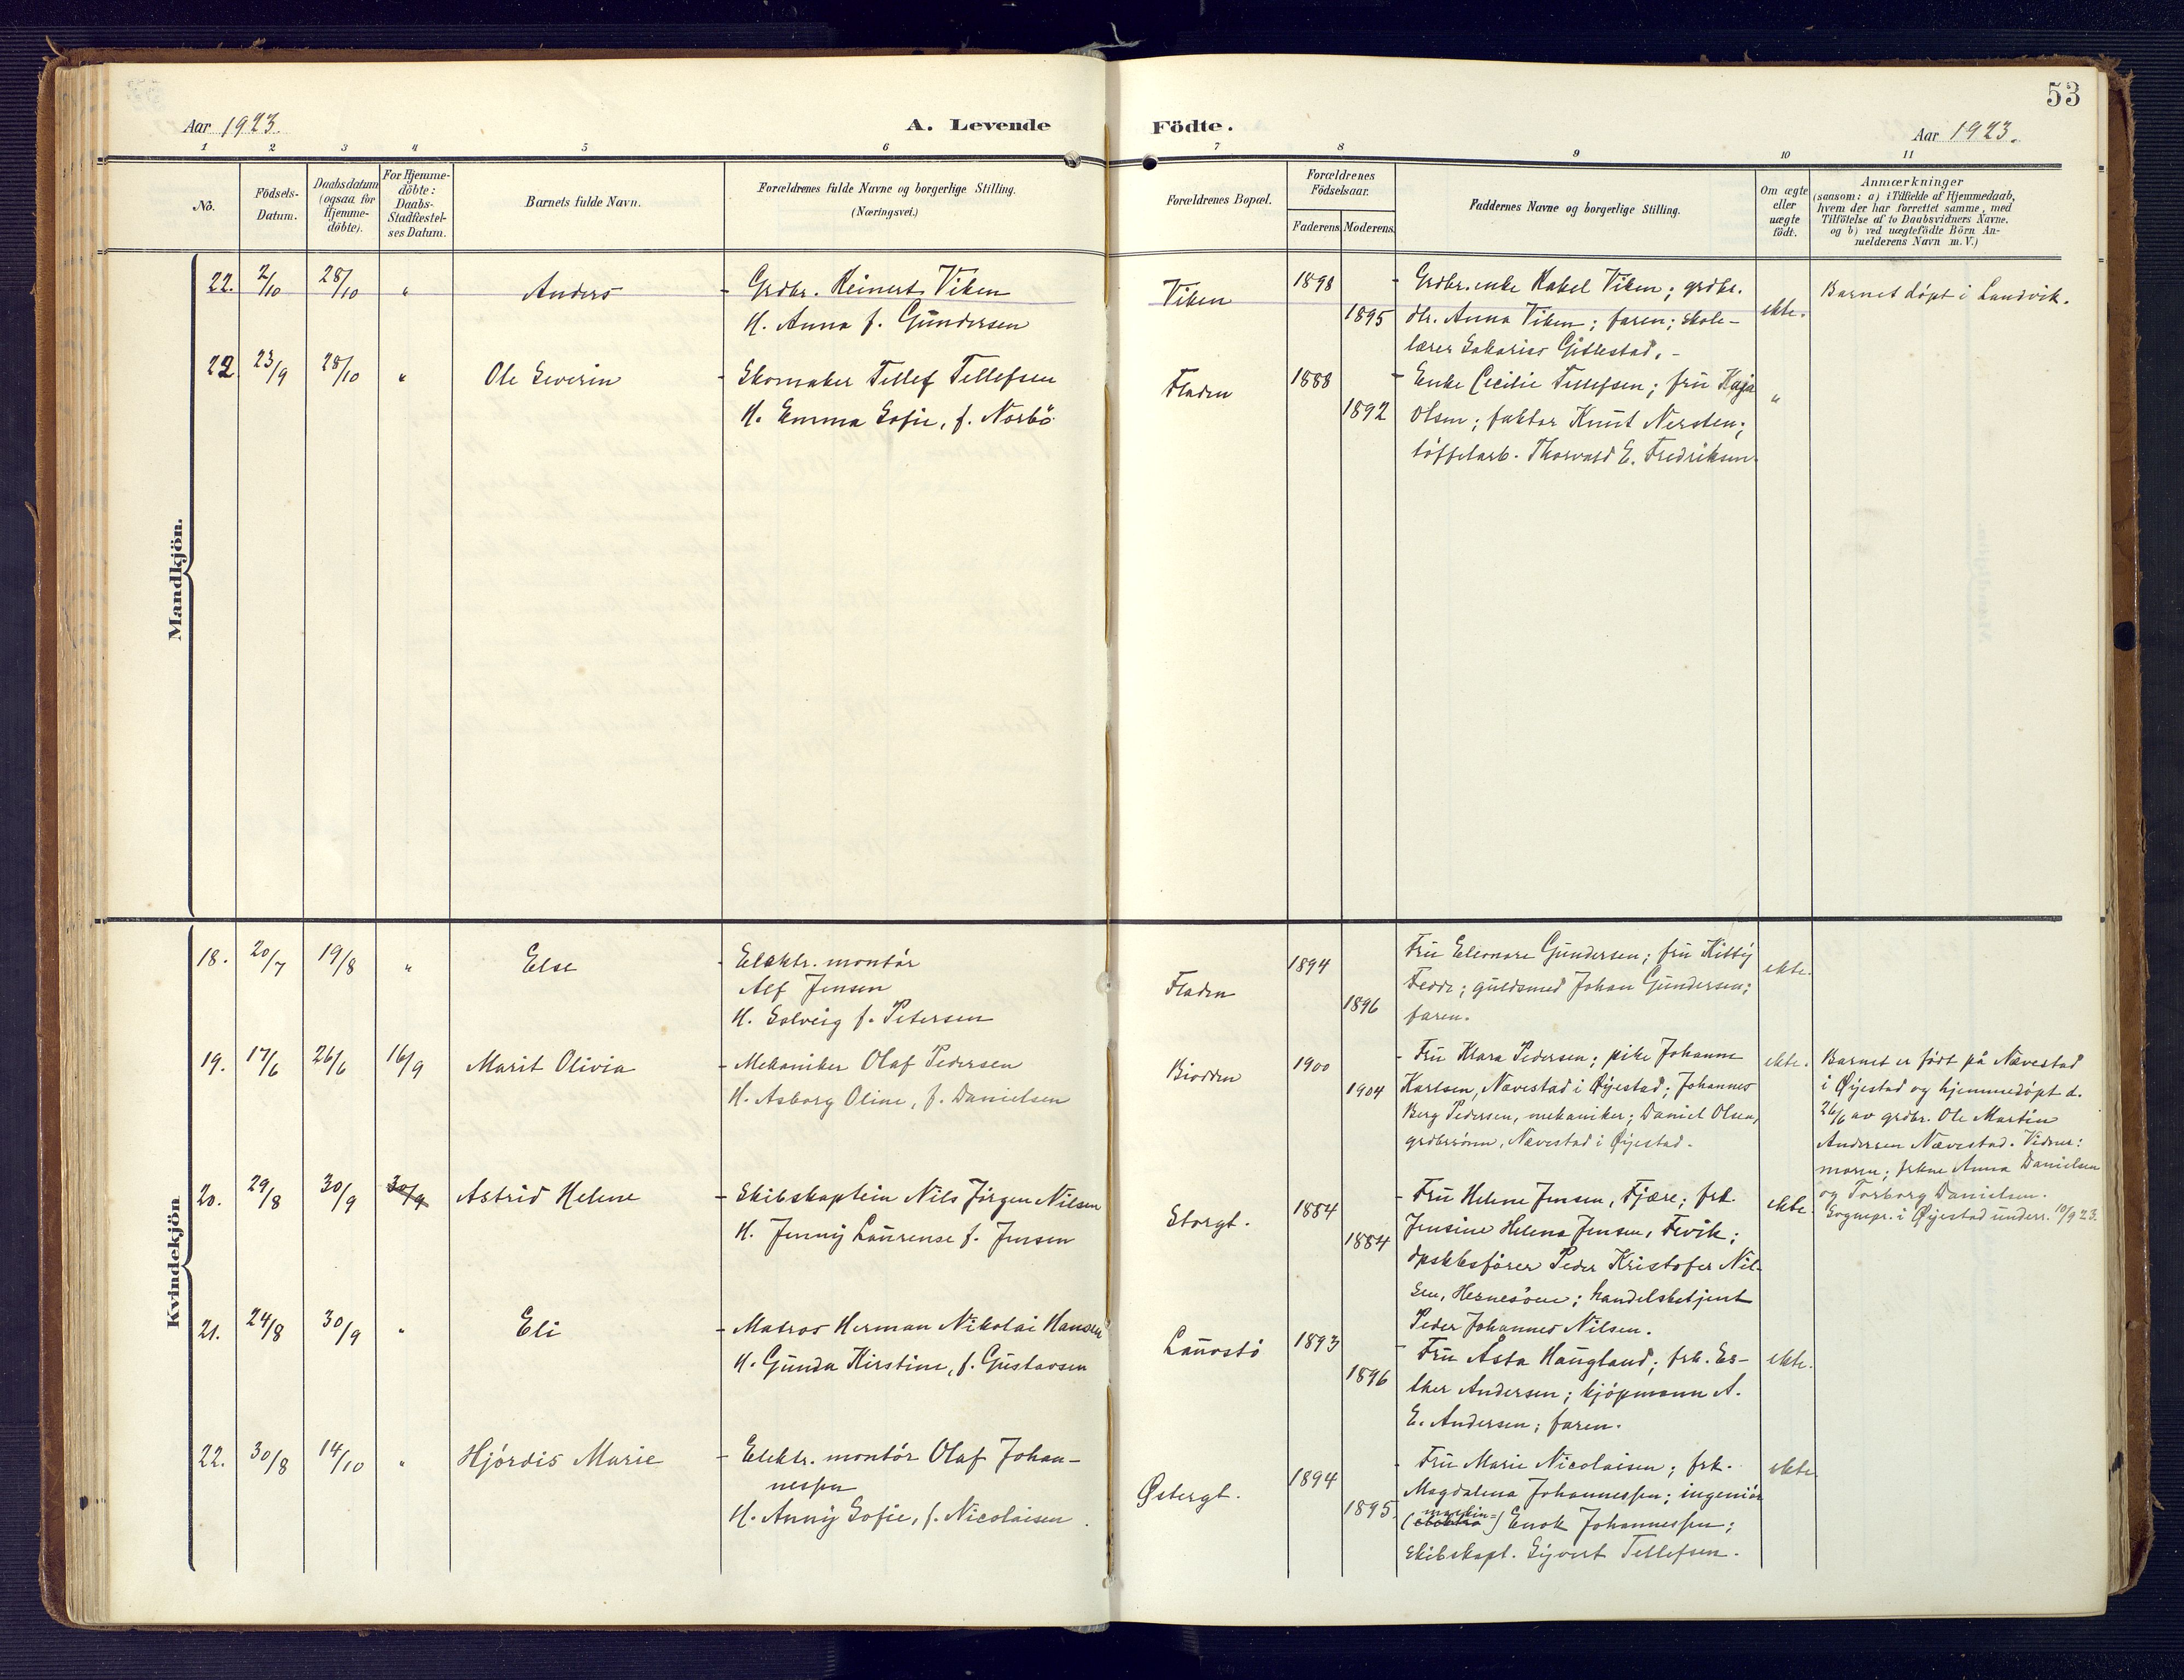 53
Aar 1923.
A. Levende Födte.
Aar 1923.
1 2 3 4 5 6 7 8 9 10 11
No.
Födsels-
Datum.
Daabsdatum
(ogsaa for
Hjemme-
döbte).
For Hjemme-
döbte:
Daabs-
Stadfestel-
ses Datum.
Barnets fulde Navn.
Forældrenes fulde Navne og borgerlige Stilling.
(Næringsvei.)
Forældrenes Bopæl.
Forældrenes
Födselsaar.
Faderens. Moderens.
Faddernes Navne og borgerlige Stilling.
Om ægte
eller
uægte
födt.
Anmærkninger
(saasom: a) i Tilfælde af Hjemmedaab,
hvem der har forrettet samme, med
Tilföielse af to Daabsvidners Navne.
og b) ved uægtefödte Börn An-
melderens Navn m.V.)
Mandkjön.
22. 2/10 28/10 " Anders
- Grdbr. Reinert Viken
H. Anna f. Gundersen
Viken 1898 1895
- Grdbr.enke Rakel Viken; grdbr.
dtr. Anna Viken; faren; skole-
lærer Sakarias Gitlestad. -
ekte.
Barnet døpt i Landvik.
22 23/9 28/10 " Ole Severin
- Skomaker Tellef Tellefsen
H. Emma Sofie, f. Norbö
Fladen 1888 1892
- Enke Cecilie Tellefsen; fru Kaja
Olsen; faktor Knut Nersten;
töffelarb. Thorvald E. Fredriksen.
"
Kvindekjön
18. 20/7 19/8 " Else
- Elektr. montör
Alf Jensen
H. Solveig f. Petersen
Fladen 1894 1896
Fru Eleonore Gundersen; fru Kitty
Fedde; guldsmed Johan Gundersen;
faren.
ekte.
19. 17/6 26/6 16/9 Marit Olivia
- Mekaniker Olaf Pedersen
H. Asborg Oline, f. Danielsen
Biodden 1900 1904
- Fru Klara Pedersen; pike Johanne
Karlsen, Nævestad i Øyestad; Johannes
Berg Pedersen, mekaniker; Daniel Olsen,
grdbrsönn, Nævestad i Øyestad.
ekte.
Barnet er født på Nævestad
i Øyestad og hjemmedøpt d.
26/6 av grdbr. Ole Martin
Andersen Nævestad. Vidner:
moren; frkne Anna Danielsen
og Torborg Danielsen.
Sognepr. i Øyestad underr. 10/9 23.
20. 29/8 30/9 30/9 Astrid Helene
- Skibskaptein Nils Jørgen Nilsen
H. Jenny Laurense f. Jensen
Storgt. 1884 1884
- Fru Helene Jensen, Fjære; frk.
Jensine Helena Jensen, Fevik;
dpskbsfører Peder Kristofer Nil-
sen, Hesnesöen; handelsbetjent
Peder Johannes Nilsen.
ekte.
21. 24/8 30/9 " Eli
- Matros Herman Nikolai Hansen
H. Gunda Kirstine, f. Gustavsen
Laurstö 1893 1896
- Fru Åsta Haugland; frk. Es-
ther Andersen; kjöpmann A.
E. Andersen; faren.
ekte.
22. 30/8 14/10 " Hjördis Marie
- Elektr. montör Olaf Johan-
nessen
H. Anny Sofie, f. Nicolaisen
Østergt. 1894 1895.
- Fru Marie Nicolaisen; frk.
Magdalena Johannessen; ingeniør
(elektro maskin-) Enok Johannessen;
skibskapt. Syvert Tellefsen.
ekte